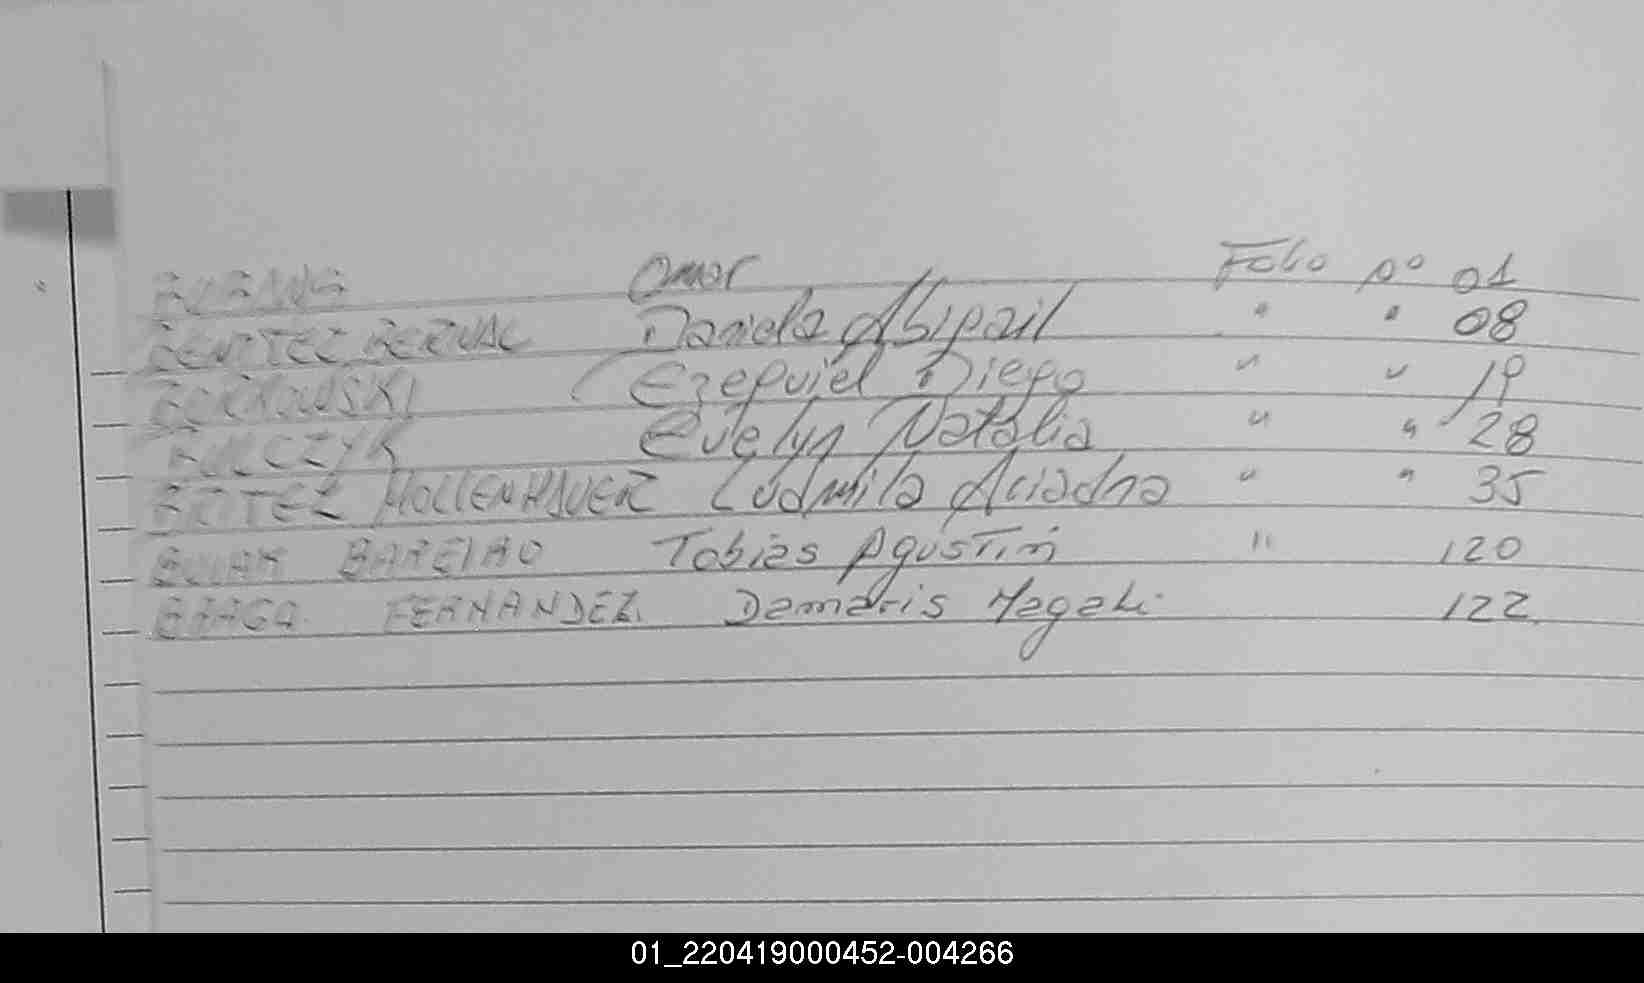 Omar Folio Nº 01
BENITEZ BERNAL Daniela Abigail " " 08
Ezequiel Diego " " 19
Evelyn Natalia " " 28
HOLLENHAUER Ludmila Ariadna " " 35
BAREIRO Tobias Agustin " 120
BRAGA FERNANDEZ. Damaris Magali 122
01_220419000452-004266